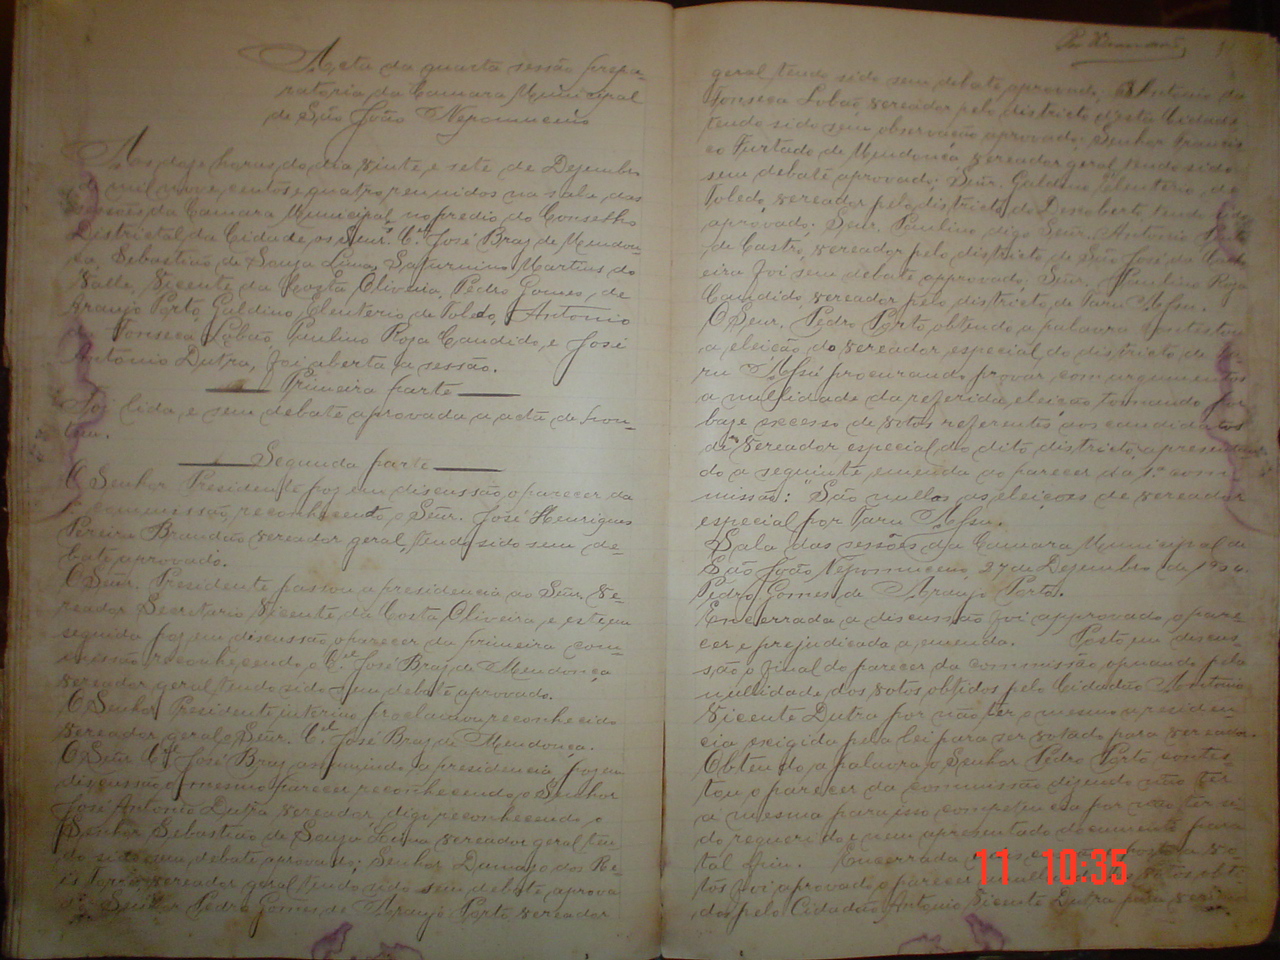 Acta da quarta sessão prepa-
ratoria da Camara Municipal
de São João Nepomuceno
Aos doze horas do dia vinte e sete de Dezembro
de mil nove centos e quatro, reunidos na sala das
sessões da Camara Municipal, no predio do Conselho
Districtal da Cidade, os Senrs. Cel. José Braz de Mendon-
ça, Sebastião de Souza Lima, Saturnino Martins do
Valle, Vicente da Costa Oliveira, Pedro Gomes de
Araujo Porto, Galdino Eleuterio de Toledo, Antonio
da Fonseca Lobão, Paulino Roza Candido, e José
Antonio Dutra, foi aberta a sessão.
Primeira parte
Foi lida, e sem debate approvada a acta de hon-
tem.
Segunda parte
O Senhor Presidente poz em discussão, o parecer da
commissão, reconhecendo o Señr. José Henriques
Pereira Brandão vereador geral, tendo sido sem de-
bate aprovado.
O Senr. Presidente passou a presidencia ao Señr. Ve-
reador Secretario Vicente da Costa Oliveira e este, em
seguida poz em discussão, o parecer da primeira com-
missão reconhecendo o Cel. José Braz de Mendonça
vereador geral tendo sido sem debate aprovado.
O Senhor Presidente interino proclamou reconhecido
vereador geral o Señr. Cel. José Braz de Mendonça.
O Señr Cel José Braz assumindo a presidencia, poz em
discussão o mesmo parecer reconhecendo, o Senhor
José Antonio Dutra vereador, digo, reconhecendo, o
Senhor Sebastião de Souza Lima vereador geral ten-
do sido sem debate aprovado; Senhor Damazo dos Re-
is vereador geral tendo sido sem debate, aprova-
do Senhor Pedro Gomes de Araujo Porto, vereador
geral tendo sido sem debate aprovado; Antonio da
Fonseca Lobão, vereador pelo districto desta Cidade
tendo sido sem observação aprovado; Senhor Francis-
co Furtado de Mendonça, vereador geral, tendo sido
sem debate aprovado; Señr. Galdino Eleuterio de
Toledo, vereador pelo districto do Descoberto, tendo sido
aprovado; Senr. Paulino digo Senr. Antonio
de Castro, vereador pelo districto de São José da Cacho-
eira foi sem debate approvado; Señr. Paulino Roza
Candido, vereador pelo districto de Taru Assu.
O Senr. Pedro Porto, obtendo a palavra contestou
a eleição do vereador especial do districto de Ta-
ru Assú procurando provar, com argumentos
a nullidade da referida eleição tomando por
base excesso de votos referentes aos candidatos
de vereador especial do dito districto, apresentan-
do a seguinte emenda ao parecer da 1ª com-
missão: "São nullas as eleições de vereador
especial por Taru Assu.
Sala das sessões da Camara Municipal de
São João Nepomuceno, 27 de Dezembro de 1904.
Pedro Gomes de Araujo Porto.
Encerrada a discussão foi approvado, o pare-
cer e prejudicada a emenda. Posto em discus-
são o final do parecer da commissão opinando pela
nullidade dos votos obtidos pelo Cidadão Antonio
Vicente Dutra por não ter o mesmo a residen-
cia exigida pela lei para ser votado para vereador.
Obtendo a palavra o Senhor Pedro Porto contes-
tou o parecer da commissão dizendo não ter
a mesma para isso competencia por não ter si-
do requerido e nem apresentado documento para
tal fim. Encerrada a vo-
tos foi aprovado o parecer votos obti-
dos pelo Cidadão Antonio Vicente Dutra para verea
11 10:35